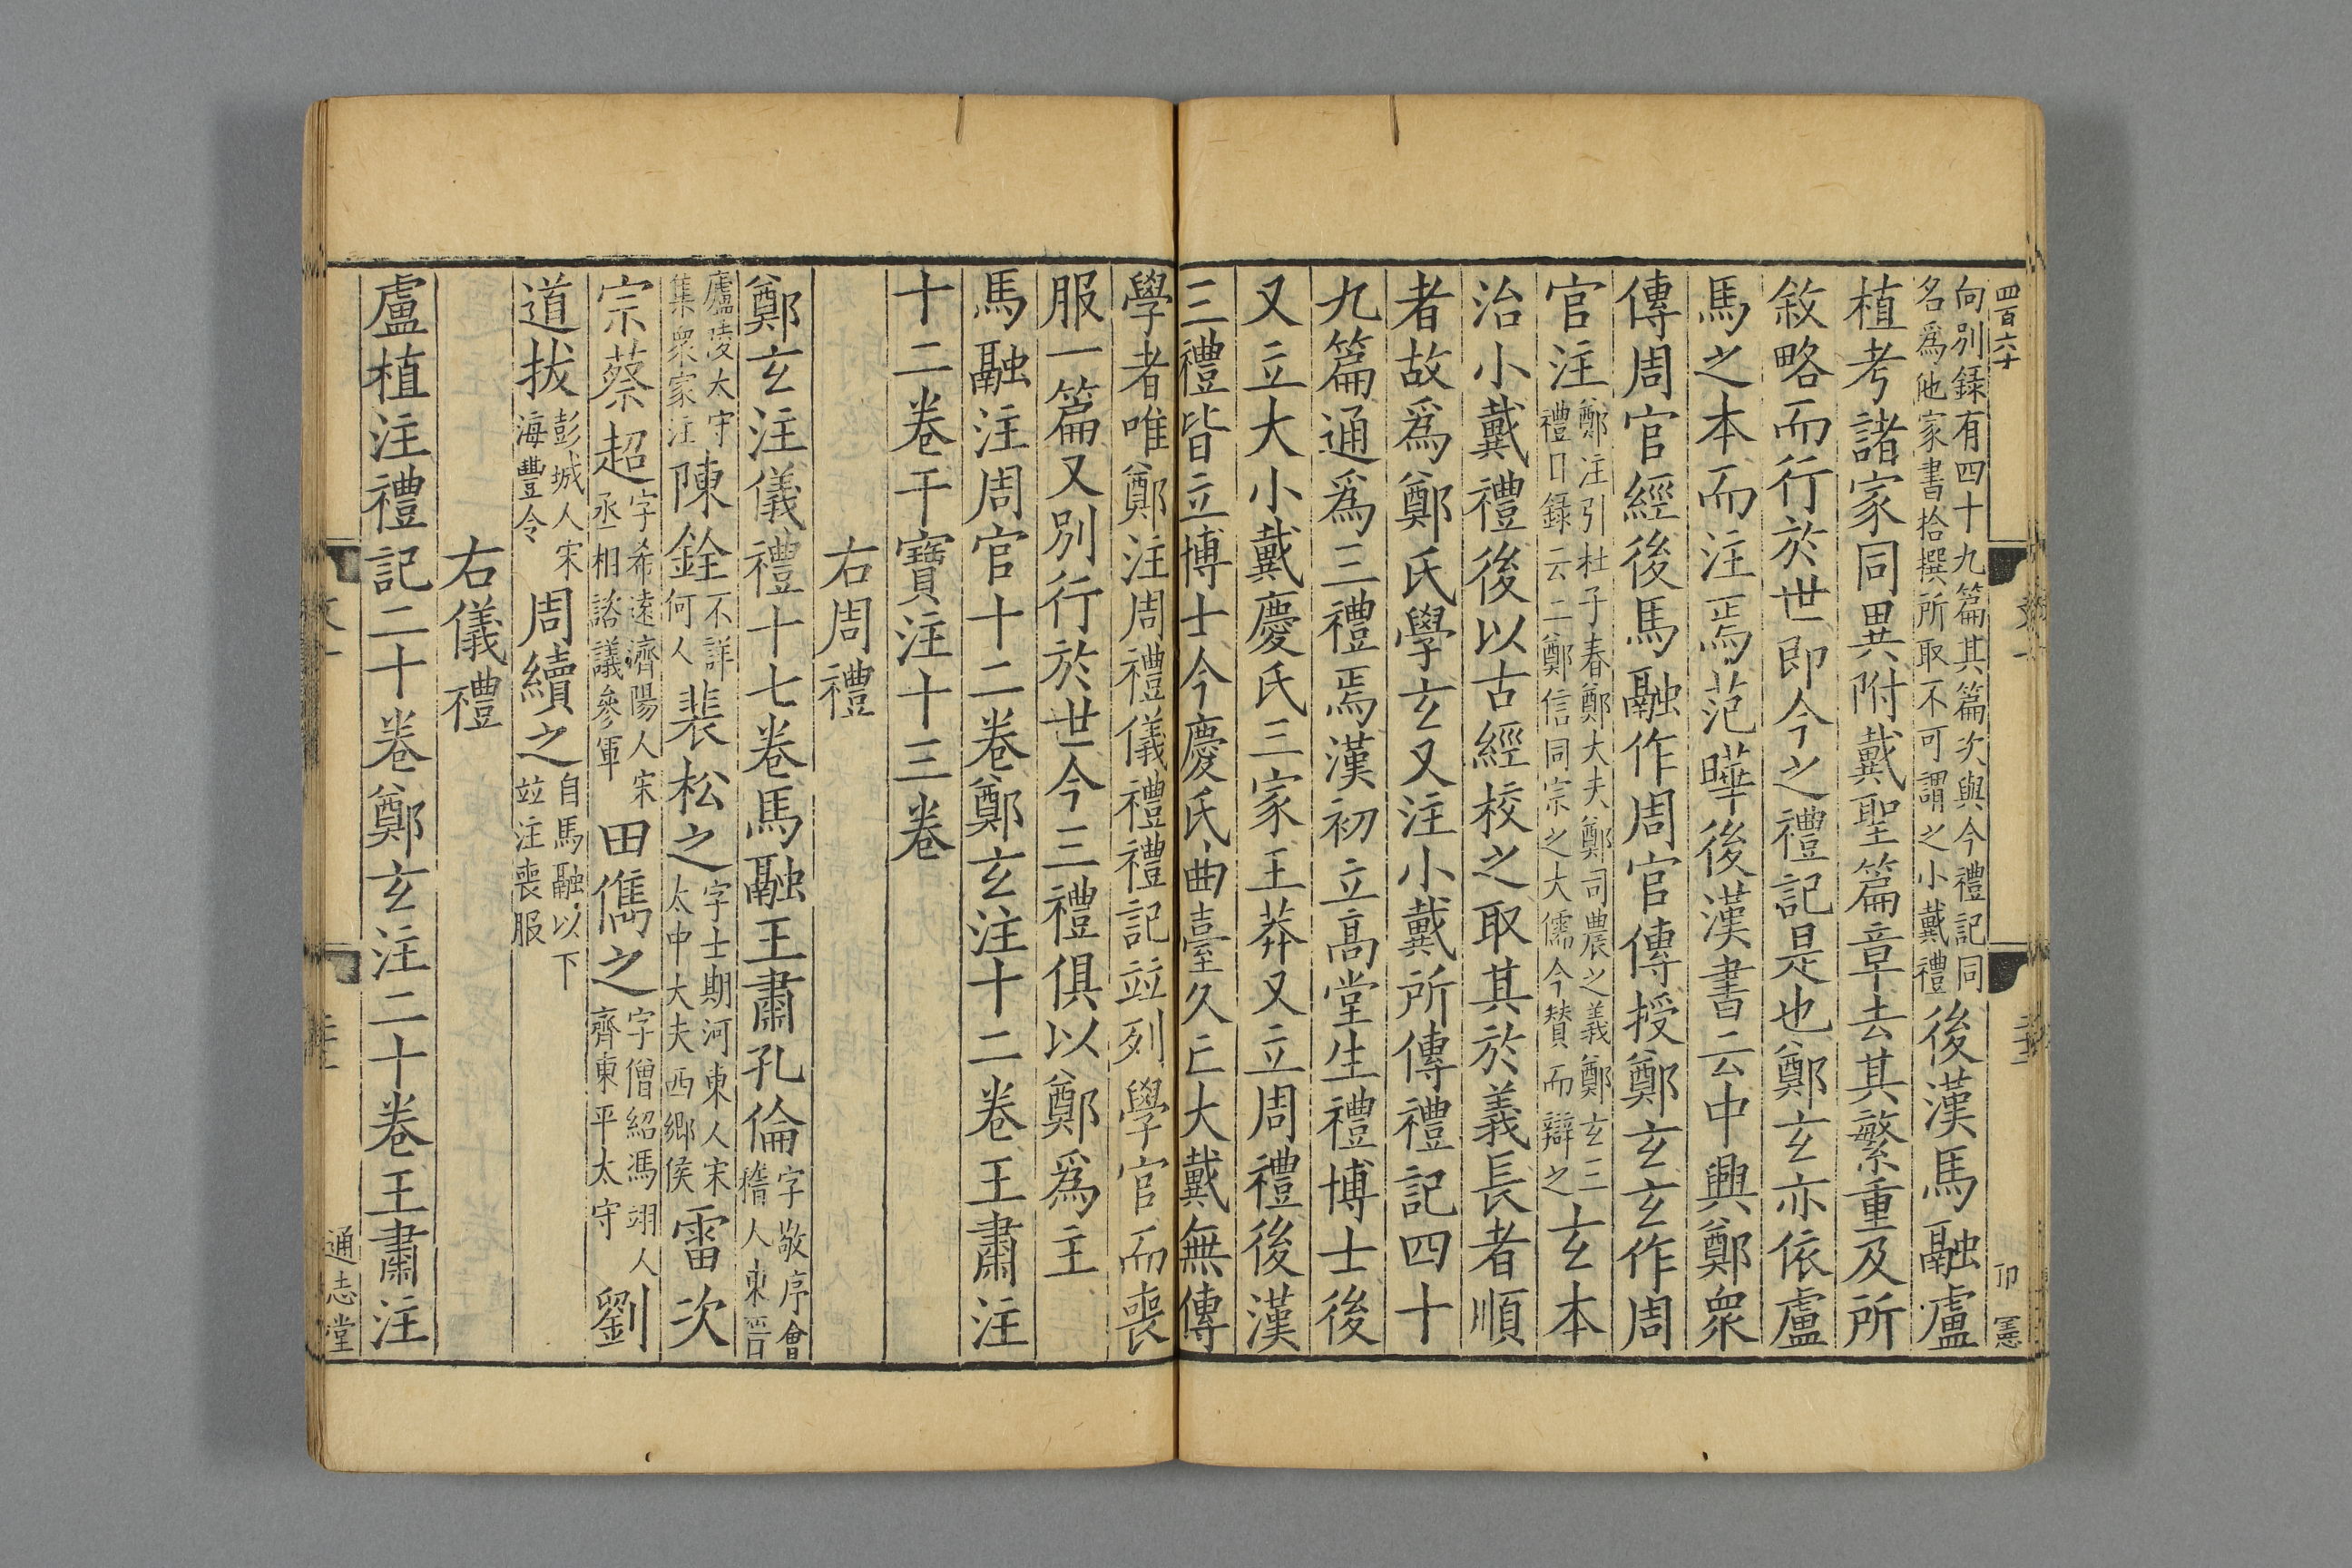 四百六十
卬憲
向別録有四十九篇其篇次與今禮記同
名爲他家書拾撰所取不可謂之小戴禮
後漢馬融盧
植考諸家同異附戴聖篇章去其繁重及所
敘略而行於世即今之禮記是也鄭玄亦依盧
馬之本而注焉范曄後漢書云中興鄭衆
傳周官經後馬融作周官傳授鄭玄玄作周
官注
鄭注引杜子春鄭大夫鄭司農之義鄭玄三
禮目録云二鄭信同宗之大儒今賛而辯之
玄本
治小戴禮後以古經校之取其於義長者順
者故爲鄭氏學玄又注小戴所傳禮記四十
九篇通爲三禮焉漢初立高堂生禮博士後
又立大小戴慶氏三家王莽又立周禮後漢
三禮皆立博士今慶氏曲臺久亡大戴無傳
學者唯鄭注周禮儀禮禮記竝列學官而喪
服一篇又別行於世今三禮俱以鄭爲主
馬融注周官十二卷鄭玄注十二卷王肅注
十二卷干寶注十三卷
右周禮
鄭玄注儀禮十七卷馬融王肅孔倫
字敬序會
稽人東晉
廬陵太守
集衆家注
陳銓
不詳
何人
裴松之
字士期河東人宋
太中大夫西鄉侯
雷次
宗蔡超
字希遠濟陽人宋
丞相諮議參軍
田儁之
字僧紹馮翊人
齊東平太守
劉
道拔
彭城人宋
海豐令
周續之
自馬融以下
竝注喪服
右儀禮
盧植注禮記二十卷鄭玄注二十卷王肅注
通志堂